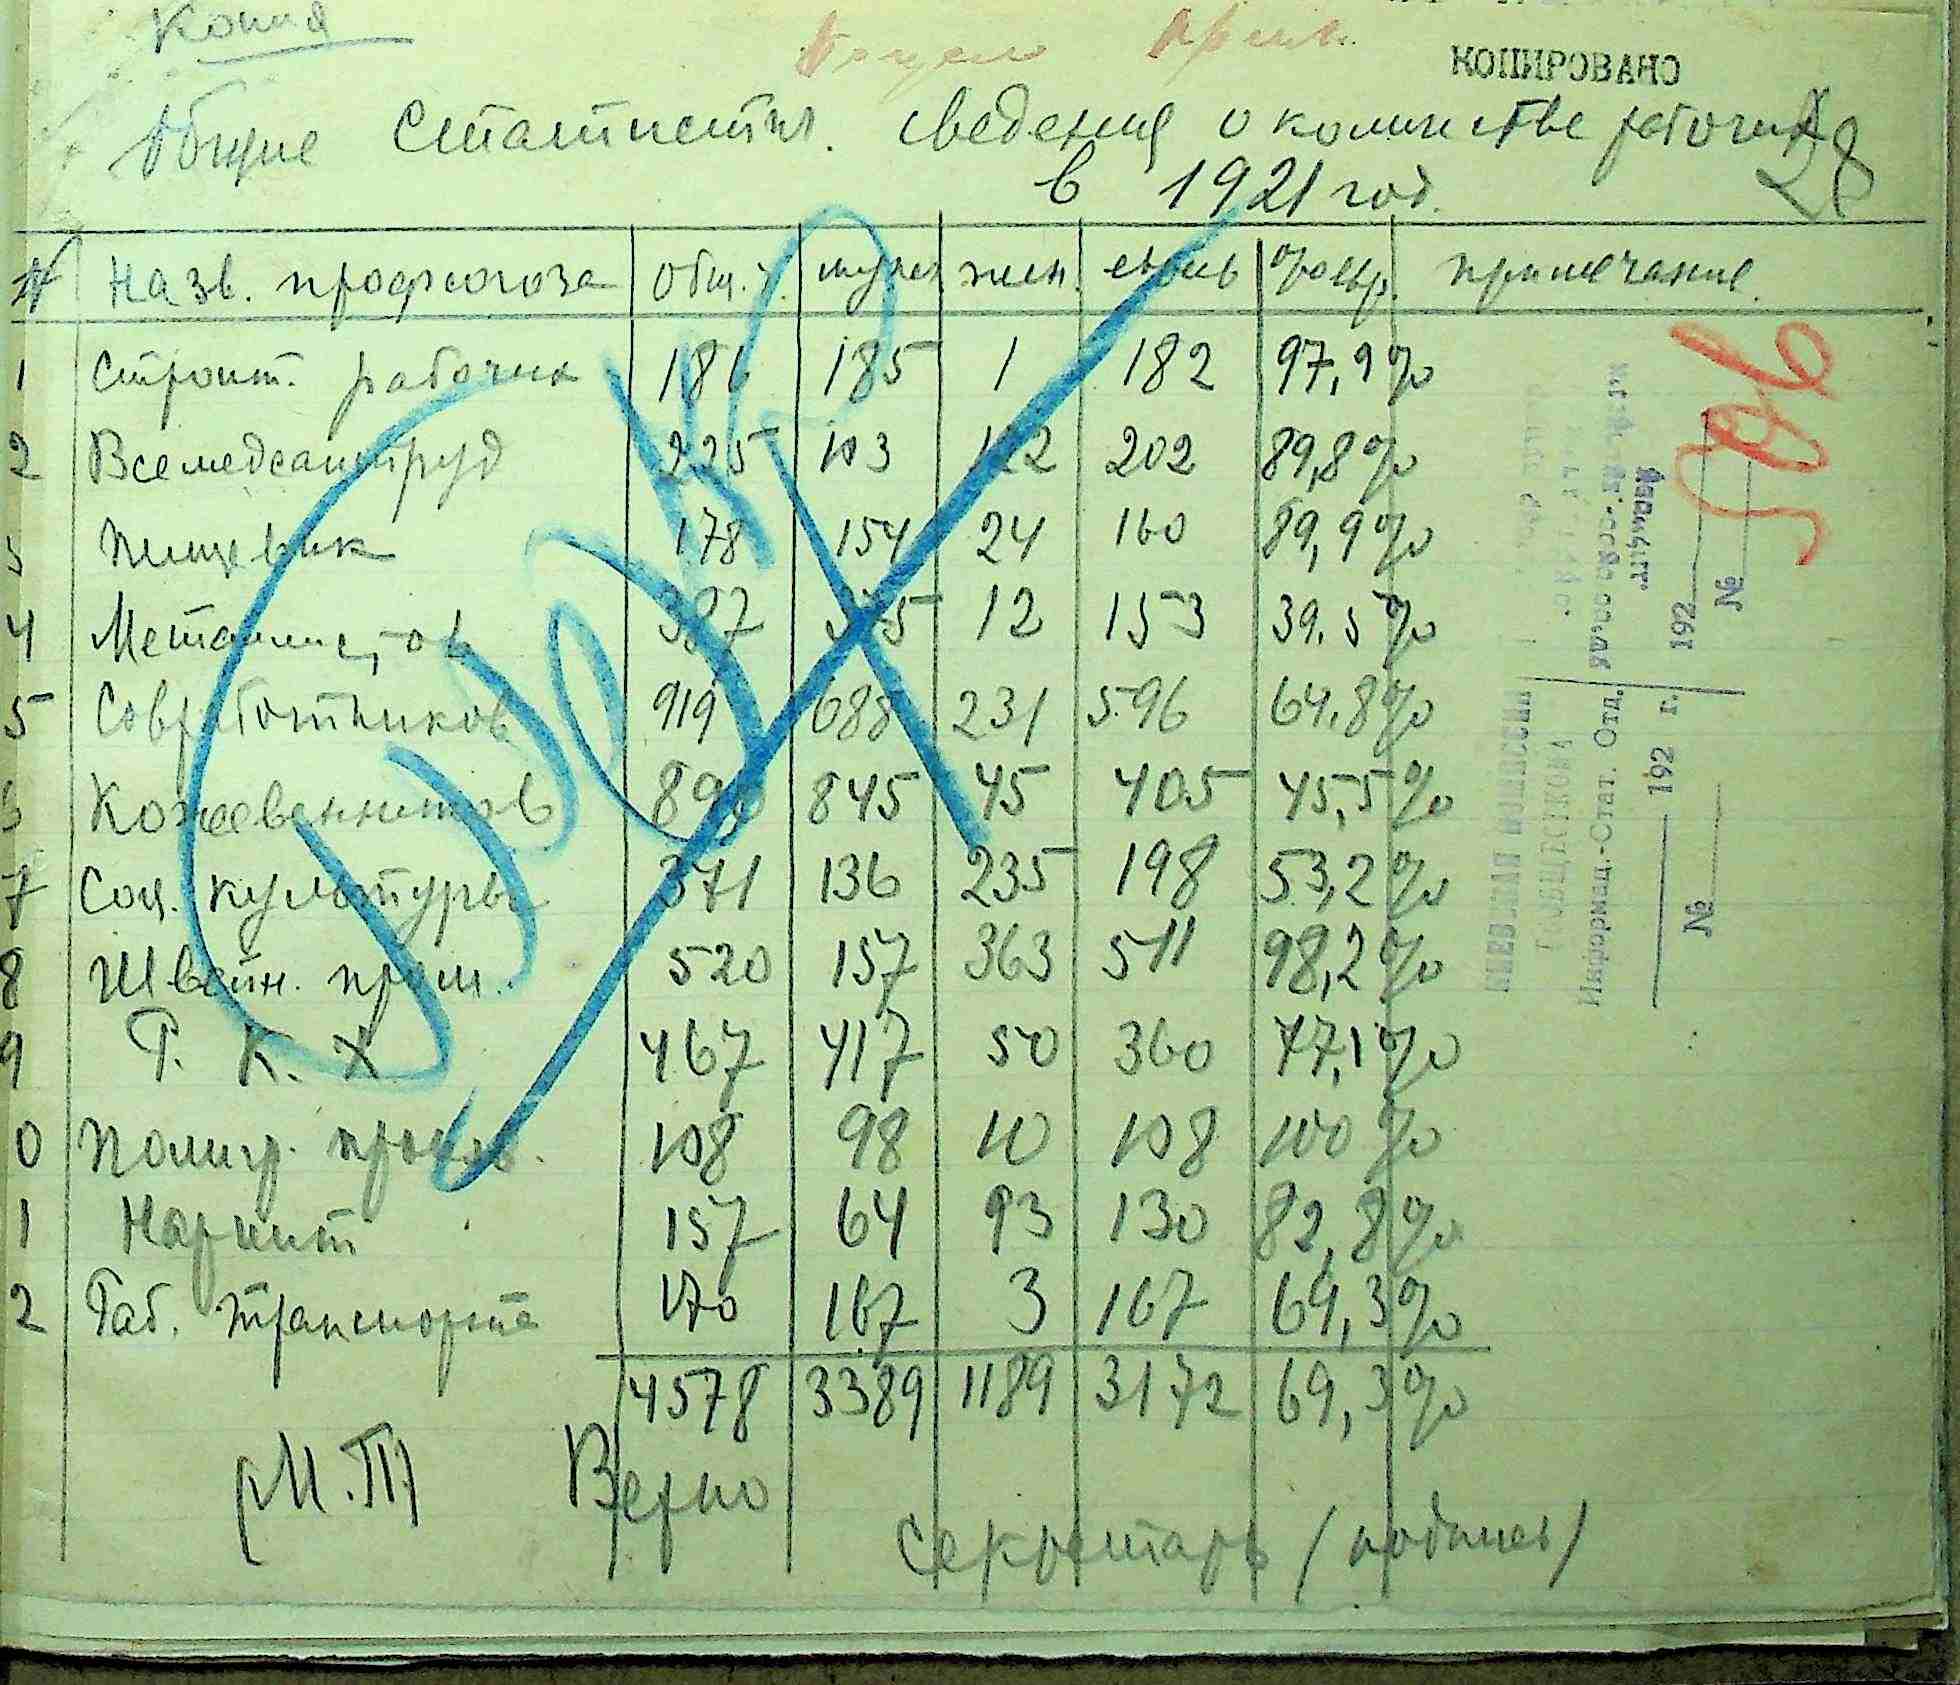 Копия
КОПИРОВАНО
Общие Статистич. сведения о количестве рабочих
28
в 1921 год.
№ Назв. профсоюза общ. ч. мужч жен. евреев % евр. примечание.
1 Строит. рабочих 186 185 1 182 97,9%
2 Всемедсантруд 225 103 122 202 89,8%
3 Пищевик 178 154 24 160 89,9%
4 Металлистов 387 375 12 153 39.5%
5 Совработников 919 688 231 596 64.8%
6 Кожевенников 890 845 45 405 45,5%
7 Соц. культуры 371 136 235 198 53,2%
8 Швейн. пром. 520 157 363 511 98,2%
9 Р. К. Х. 467 417 50 360 77,1%
0 Полигр. произв. 108 98 10 108 100%
1 Нарпит 157 64 93 130 82,8%
2 Раб. транспорта 170 167 3 167 69,3%
4578 3389 1189 3172 69,3%
(М.П) Верно
Секретарь (подпись)
Информац.-Стат. Отд.
192 г.
№
192
№